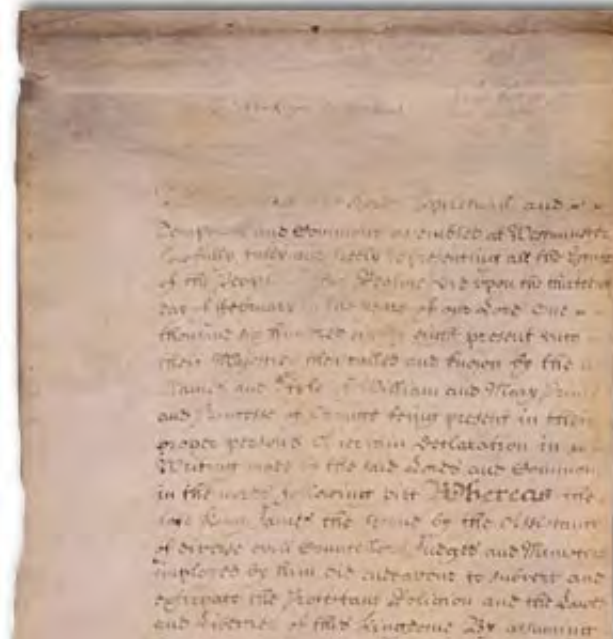 Lords Spiritual and
Temporall and Commons assembled at Westminster
Lawfully fully and freely representing all the Estates
of the People of this Realme did upon the thirteenth
day of February in the yeare of our Lord One
thousand six hundred eighty eight present unto
their Majesties then called and known by the
Names and Stile of William and Mary Prince
and Princesse of Orange being present in their
proper persons A certain Declaration in
Writing made by the said Lords and Commons
in the words following viz Whereas the
late King James the Second by the Assistance
of diverse evill Counsellors Judges and Ministers
imployed by him did endeavour to subvert and
extirpate the Protestant Religion and the Lawes
and Liberties of this Kingdome By assuming